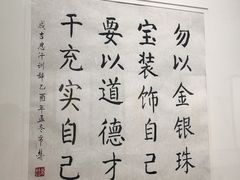 勿以金银珠
宝装饰自己
要以道德才
干充实自己
成吉思汗训辞乙酉年孟冬